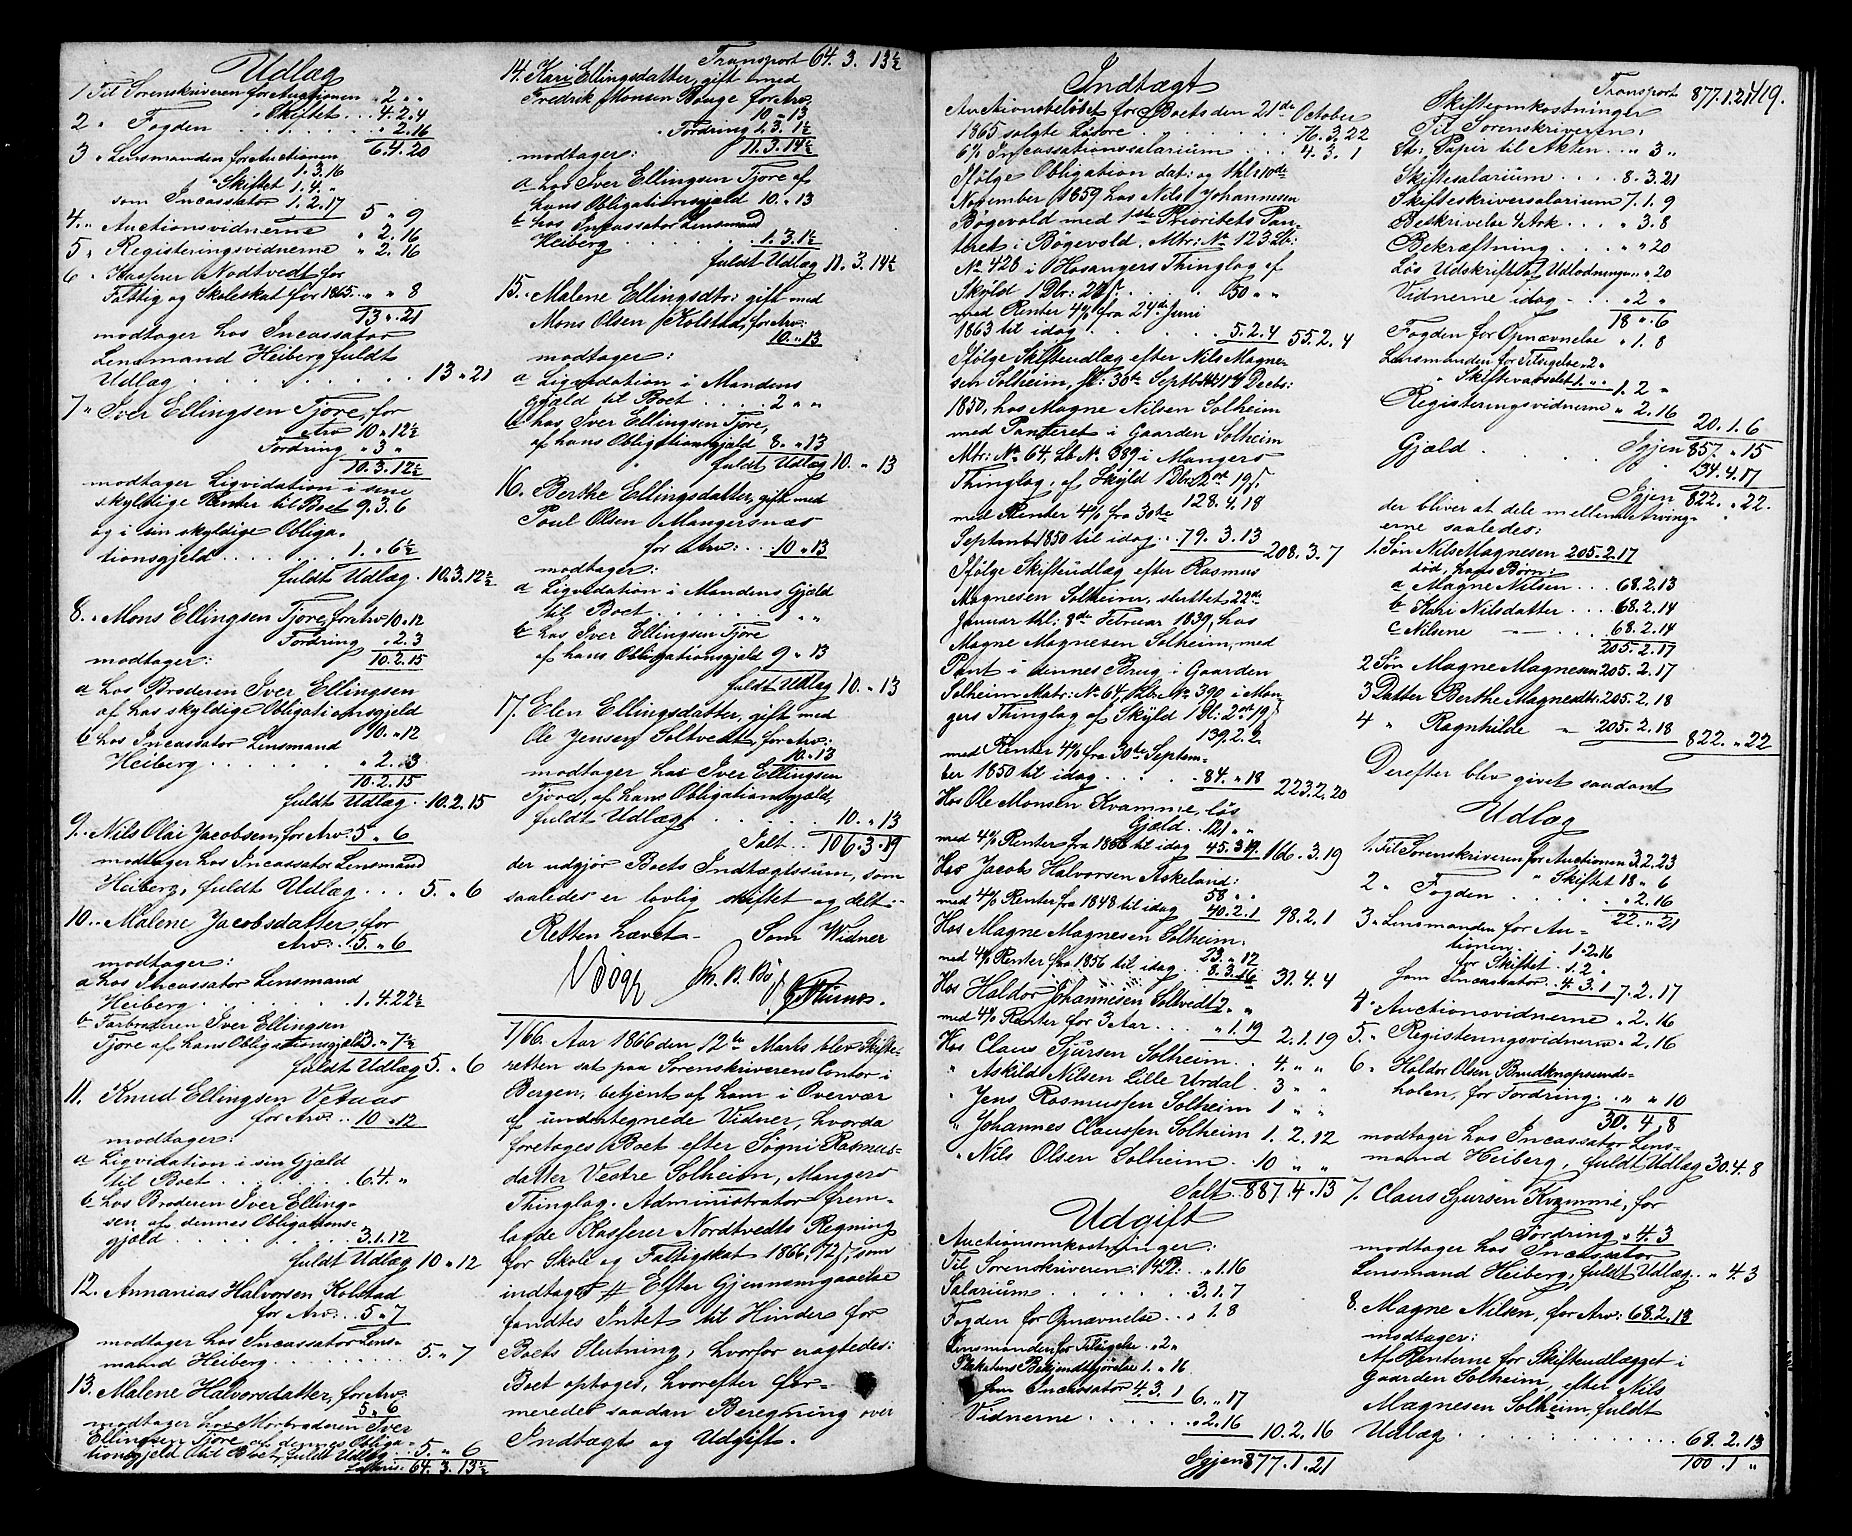 Udlæg
1 Til Sorenskriveren for Auctionen „ 2 „ „
„ Skiftet . . . 4. 2. 4
2 „ Fogden . . . „ 2. 16
6. 4. 20
3 „ Lensmanden for Auctionen
1. 3. 16
„ Skiftet 1. 4. „
som Incassator 1. 2. 17
5 „ 9
4 „ Auctionsvidnerne „ 2. 16
5 „ Registeringsvidnerne „ 2. 16
6 „ Kasserer Nodtvedt for
Fattig og Skoleskat for 1865 . . „ „ 8
13 „ 21
modtager hos Incassator
Lensmand Heiberg fuldt
Udlæg . . . . . . . . . 13 „ 21
7 „ Iver Ellingsen Tjore, for
Arv 10 „ 12½
Fordring „ 3 „
10. 3. 12½
modtager Liqvidation i sine
skyldige Renter til Boet 9. 3. 6
og i sin skyldige Obliga-
tionsgjeld . . . . . 1. „ 6½
fuldt Udlæg . 10. 3. 12½
8 . „ Mons Ellingsen Tjore, for Arv 10 „ 12
Fordring „ 2. 3
10. 2. 15
modtager:
a hos Broderen Iver Ellingsen
af hos skyldige Obligationsgjeld
10 „ 12
b hos Incassator Lensmand
Heiberg . . . . . . „ 2. 3
10. 2. 15
fuldt Udlæg . 10. 2. 15
9 . „ Nils Olai Jacobsen, for Arv 5 „ 6
modtager hos Incassator Lensmand
Heiberg, fuldt Udlæg . . . 5 „ 6
10 . „ Malene Jacobsdatter, for
Arv: . 5 „ 6
modtager:
a hos Incassator Lensmand
Heiberg . . . . . . . 1. 4. 22½
b Farbroderen Iver Ellingsen
Tjore af hans Obligationsgjeld 3. „ 7½
fuldt Udlæg 5. „ 6
11. Knud Ellingsen Vetaas
for Arv: . . 10 „ 12
modtager:
a Liqvidation i sin Gjæld
til Boet . . . . . . . 6. 4. „
b hos Broderen Iver Elling-
sen, af dennes Obligations-
gjæld . . . . . . . . 3. 1. 12
fuldt Udlæg 10 „ 12
12. Annanias Halvorsen Kolstad
for Arv: . . 5 „ 7
modtager hos Incassator Lens-
mand Heiberg . . . . . . . . 5. „ 7
13. Malene Halvorsdatter, for Arv:
5 „ 6
modtager hos Morbroderen Iver
Ellingsen Tjore, af dennes Obliga-
tionsgjeld til Boet, fuldt Udlæg . . 5. „ 6
Lateris: 64. 3. 13½
Transport 64. 3. 13½
14. Kari Ellingsdatter, gift med
Fredrik Monsen Bauge for Arv
10 „ 13
„ Fordring 1. 3. 1½
11. 3. 14½
modtager:
a hos Iver Ellingsen Tjore af
hans Obligationsgjeld 10. „ 13
b hos Incassator Lensmand
Heiberg . . . . . . . 1. 3. 1½
fuldt Udlæg 11. 3. 14½
15. Malene Ellingsdtr: gift med
Mons Olsen Kolstad, for Arv:
10. „ 13
modtager:
a Liqvidation i Mandens
gjæld til Boet . . . . 2 „ „
b hos Iver Ellingsen Tjore,
af hans Obligationsgjeld 8. „ 13
fuldt Udlæg 10. „ 13
16. Berthe Ellingsdatter, gift med
Poul Olsen Mangersnæs
for Arv: . . 10 „ 13
modtager:
a Liqvidation i Mandens Gjæld
til Boet . . . . . . 1 „ „
b hos Iver Ellingsen Tjore
af hans Obligationsgjeld 9 „ 13
fuldt Udlæg 10. „ 13
17. Elen Ellingsdatter, gift med
Ole Jensen Soltvedt, for Arv:
10. „ 13
modtager hos Iver Ellingsen
Tjore, af hans Obligationsgjæld,
fuldt Udlæg . . . . . . 10. „ 13
Ialt . . 106. 3. 19
der udgjør Boets Indtægtssum, som
saaledes er lovlig skiftet og delt. -
Retten hævet - Som Vidner
1/66. Aar 1866 den 12te Marts blev Skifte-
retten sat paa Sorenskriverens Contor i
Bergen, betjent af ham i Overvær
af undertegnede Vidner, hvorda
foretoges Boet efter Søgni Rasmus-
datter Vestre Solheim, Mangers
Thinglag. Administrator frem-
lagde Kasserer Nordtvedts Regning
for Skole og Fattigskat 1866, 72 ß, som
indtages # Efter Gjennemgaaelse
fandtes Intet til Hinder for
Boets Slutning, hvorfor eragtedes:
Boet optages, hvorefter for-
meredes saadan Beregning over
Indtægt og Udgift.
Indtægt
Auctionsbeløbet for Boets den 21de October
1865 solgte Løsøre . . . . . . . 76. 3. 22
6% Incassationssalarium . . . 4. 3. 1
Ifølge Obligation dat: og thl: 10de
November 1859 hos Nils Johannesen
Bøgevold med 1ste Prioritets Pan-
teret i Bøgevold. Mtr: No 123 Lb:
No 428 i Hosangers Thinglag af
Skyld 1 Dlr: 20 ß . . . . . 50 „ „
med Renter 4% fra 24de Juni
1863 til idag . . . . . . 5. 2. 4 55. 2. 4
Ifølge Skifteudlæg efter Nils Magne-
sen Solheim, sl: 30te Septbr thl: 4 Decbr:
1850, hos Magne Nilsen Solheim
med Panteret i Gaarden Solheim
Mtr: No 64, Lb No 389 i Mangers
Thinglag, af Skyld 1 Dlr 2 ort 19 ß
128. 4. 18
med Renter 4% fra 30te
Septemb 1850 til idag . . 79. 3. 13
208. 3. 7
Ifølge Skifteudlæg efter Rasmus
Magnesen Solheim, sluttet 22de
Januar thl: 8de Februar 1839, hos
Magne Magnesen Solheim, med
Pant i dennes Brug i Gaarden
Solheim Matr: No 64 Lbr No 390 i Man-
gers Thinglag af Skyld 1 Dl: 2 ort 19 ß
139. 2. 2.
med Renter 4% fra 30te Septem-
ber 1850 til idag . . . . . 84. „ 18
223. 2. 20
Hos Ole Monsen Kvamme, løs
Gjæld . . 121 „ „
med 4% Renter fra 1856 til idag 45. 3. 19. 166. 3. 19
Hos Jacob Halvorsen Askeland:
58 „ „
med 4% Renter fra 1848 til idag 40. 2. 1 98. 2. 1
Hos Magne Magnesen Solheim.
23. „ 12
med 4% Renter fra 1856 til idag . . 8. 3. 16 31. 4. 4
Hos Haldor Johannesen Soltvedt 2 „ „
med 4% Renter for 3 Aar . . . „ 1. 19 2. 1. 19
Hos Claus Sjursen Solheim . . 4. „ „
„ Askild Nilsen Lille Urdal . 3 „ „
„ Jens Rasmussen Solheim 1 „ „
„ Johannes Claussen Solheim 1. 2. 12
„ Nils Olsen Solheim . 10 „ „
Ialt . 887. 4. 13
Udgift
Auctionsomkostninger:
Til Sorenskriveren: 1492. . „ 1. 16
Salarium . . . . . . . 3. 1. 7
Fogden for Opnævnelse . . „ 1. 8
Lensmanden for Tilsigelse „ 2 „
Plakatens Bekjendtgjørelse 1. „ 16
som Incassator 4. 3. 1 6. „ 17
Vidnerne . . . . . . „ 2. 16 10. 2. 16
Igjen 877. 1. 21
Transport 877. 1. 21
419.
Skifteomkostninger
Til Sorenskriveren:
St: Papir til Akten . . „ 3 „
Skiftesalarium . . . . 8. 3. 21
Skifteskriversalarium 7. 1. 9
Beskrivelse 4 Ark . . . „ 3. 8
Bekræftning . . . . . „ „ 20
Løs Udskrift af Udlodningen „ „ 20
Vidnerne idag . . . „ 2 „
18 „ 6
Fogden for Opnævnelse „ 1. 8
Lensmanden for Tilsigelse „ 2 „
„ Skiftevarselet 1. „ „ 1. 2 „
Registeringsvidnerne „ 2. 16
20. 1. 6
Igjen 857. „ 15
Gjæld . . . 34. 4. 17
Igjen 822. „ 22.
der bliver at dele mellem Arving-
erne saaledes:
1. Søn Nils Magnesen 205. 2. 17
død, hans Børn:
a Magne Nilsen . . . 68. 2. 13
b Kari Nilsdatter . . . 68. 2. 14
c Nilsine — . . . 68. 2. 14
205. 2. 17
2 Søn Magne Magnesen 205. 2. 17
3 Datter Berthe Magnedtr: 205. 2. 18
4 „ Ragnhilde „ 205. 2. 18
822. „ 22
Derefter blev givet saadant
Udlæg
1. Til Sorenskriveren for Auctionen 3. 2. 23
„ Skiftet 18 „ 6
2 „ Fogden . . . . . „ 2. 16
22. „ 21
3 „ Lensmanden for Au-
tionen . . . 1. 2. 16
for Skiftet . 1. 2 „
som Incassator . 4. 3. 1 7. 2. 17
4 „ Auctionsvidnerne „ 2. 16
5. „ Registeringsvidnerne „ 2. 16
6 „ Haldor Olsen Brudknapsunds-
holen, for Fordring . . „ „ 10
30. 4. 8
modtager hos Incassator Lens-
mand Heiberg, fuldt Udlæg 30. 4. 8
7. Claus Sjursen Kvamme, for
Fordring „ 4. 3
modtager hos Incassator
Lensmand Heiberg, fuldt Udlæg . . „ 4. 3
8. Magne Nilsen, for Arv: 68. 2. 13
modtager:
Af Renterne for Skifteudlægget i
Gaarden Solheim, efter Nils
Magnesen Solheim, fuldt
Udlæg . . . . . . . . . . . . 68. 2. 13
100. 1 „